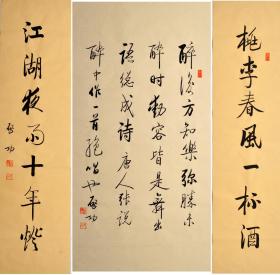 桃李春風一杯酒
醉後方知樂弥勝未
醉時動容皆是舞出
語總成詩唐人張說
醉中作一首絶唱也启功
江湖夜雨十年燈
启功